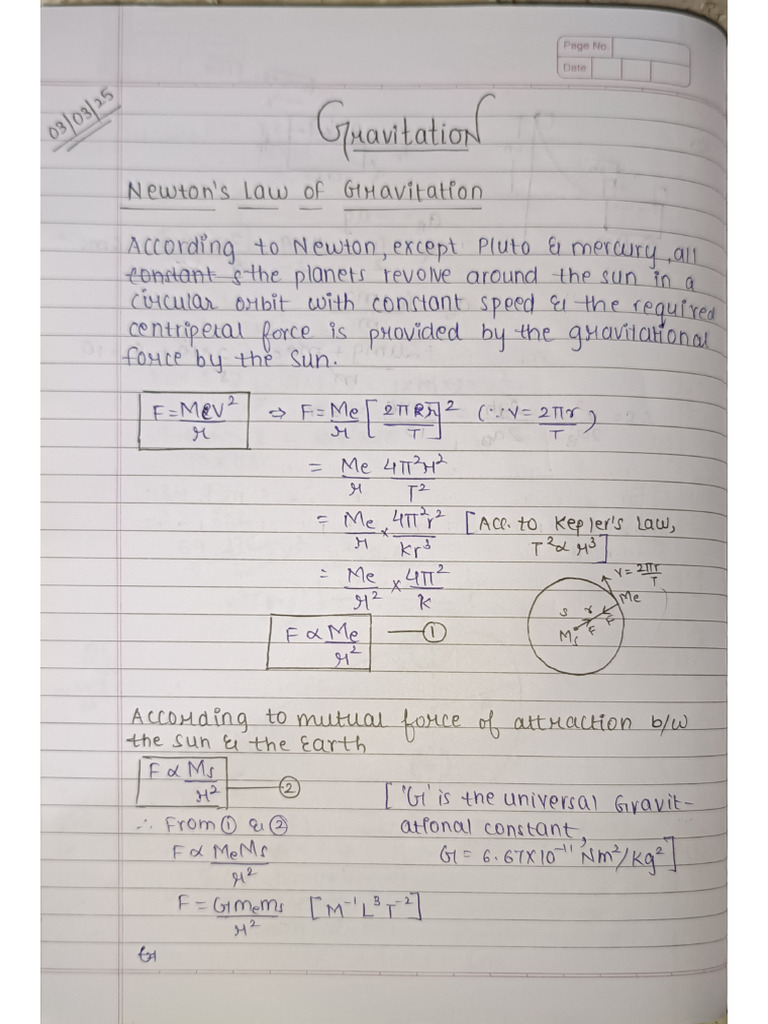 Page No.
Date
03/03/25
Gravitation
Newton's Law of Gravitation
According to Newton, except Pluto & mercury, all
constant s the planets revolve around the sun in a
circular orbit with constant speed & the required
centripetal force is provided by the gravitational
force by the Sun.
F = MeV²/r ⇒ F = Me/r [2πr/T]² (∵ V = 2πr/T)
= Me/r 4π²r²/T²
= Me/r × 4π²r²/Kr³ [Acc. to Kepler's Law, T² ∝ r³]
= Me/r² × 4π²/K
V = 2πr/T
Me
S r
Ms F F
F ∝ Me/r² — ①
According to mutual force of attraction b/w
the Sun & the Earth
F ∝ Ms/r² — ②
['G' is the universal Gravit-
ational constant,
G = 6.67×10⁻¹¹ Nm²/kg²]
∴ From ① & ②
F ∝ MeMs/r²
F = Gmems/r² [M⁻¹L³T⁻²]
G